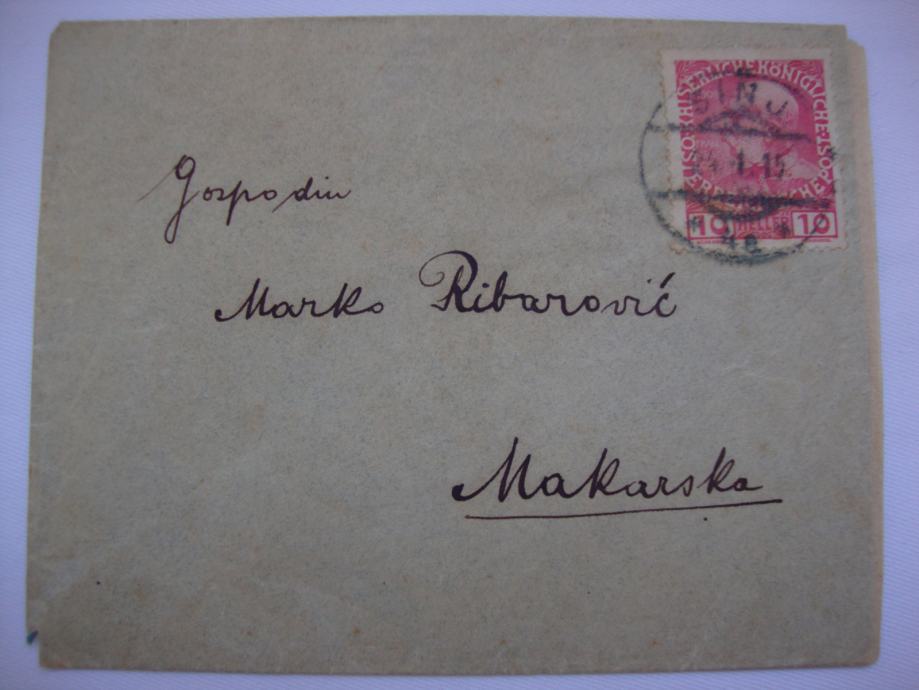 KAISERLICHE KÖNIGLICHE
10 HELLER 10
SINJ
24.1.15
4a
Gospodin
Marko Ribarović
Makarska